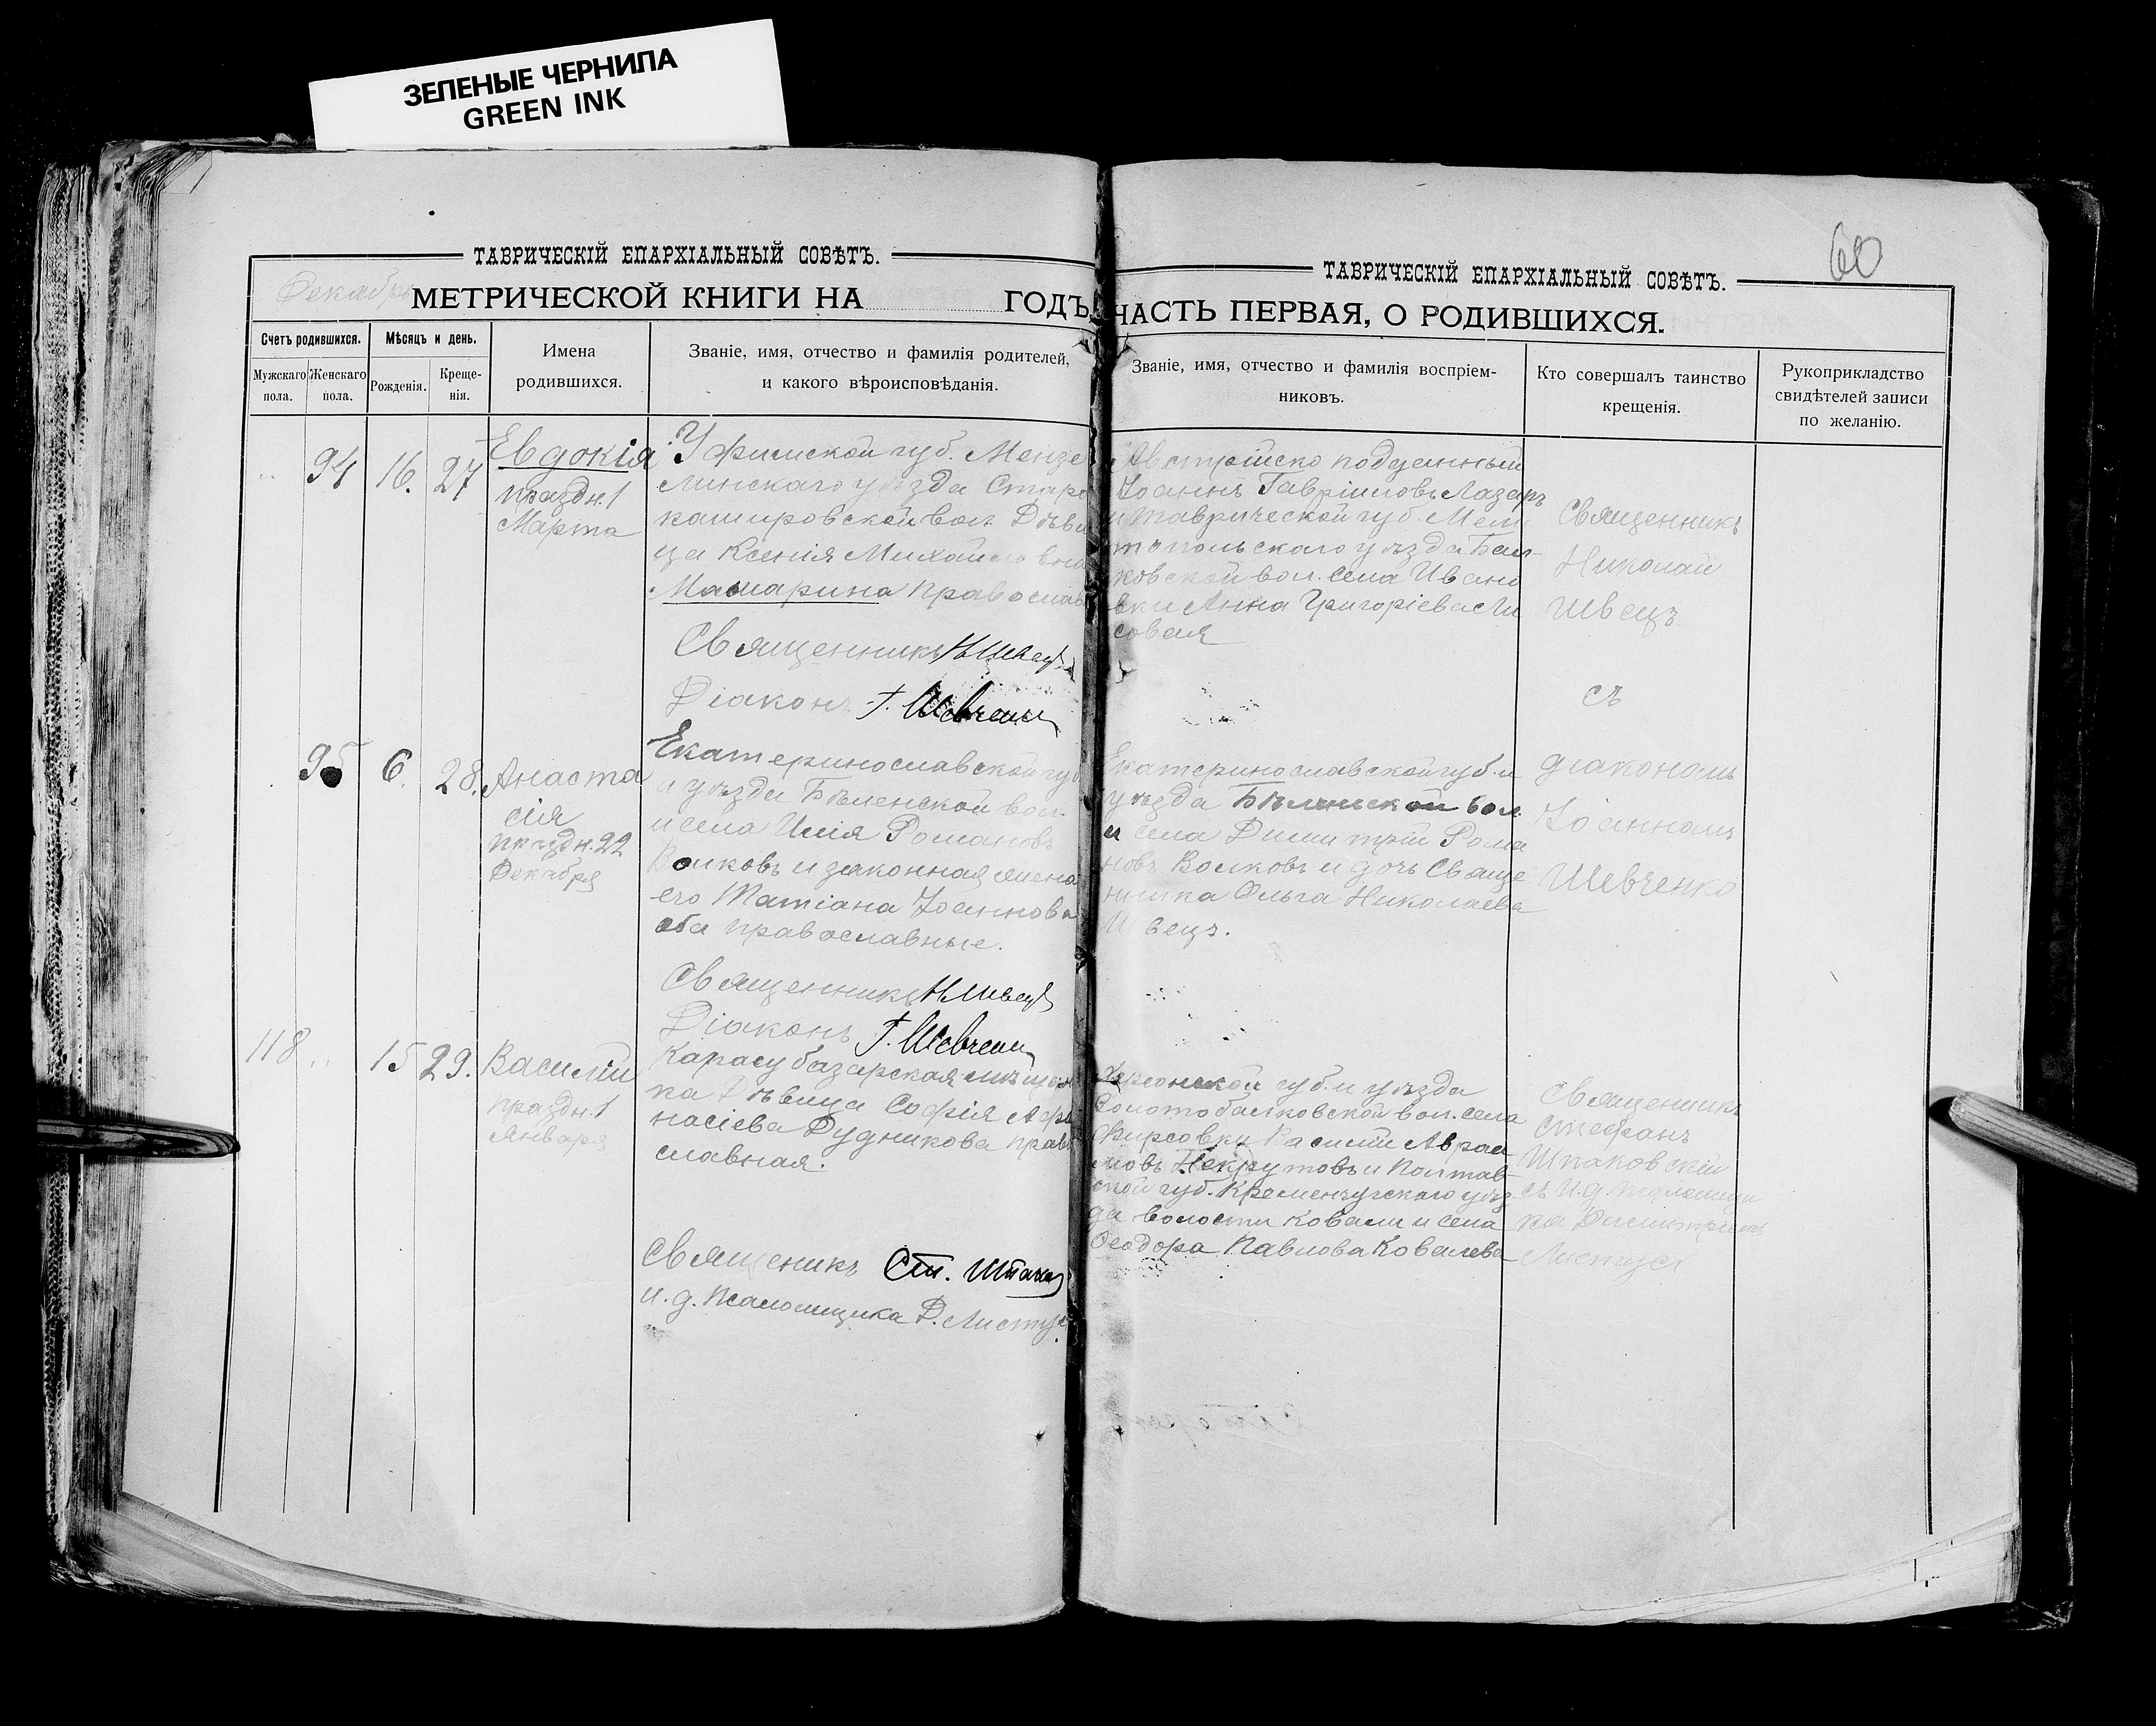 ЗЕЛЕНЫЕ ЧЕРНИЛА
GREEN INK
60
ТАВРИЧЕСКІЙ ЕПАРХІАЛЬНЫЙ СОВѢТЪ.
Декабрь
МЕТРИЧЕСКОЙ КНИГИ НА ГОДЪ,
Счетъ родившихся.
Мужскаго пола.
Женскаго пола.
Мѣсяцъ и день.
Рожденія.
Креще-
нія.
Имена
родившихся.
Званіе, имя, отчество и фамилія родителей,
и какого вѣроисповѣданія.
94
16.
27
Евдокія
праздн. 1
Марта
Уфимской губ. Мензе
линскаго уѣзда Старо
кашировской вол. Дѣви
ца Ксенія Михайловна
Машарина православ
Священникъ Н Швецъ
Діаконъ І. Шевченко
95
6.
28.
Анаста
сія
праздн. 22
Декабря
Екатеринославской губ
и уѣзда Бѣленской вол.
и села Илія Романовъ
Волковъ и законная жена
его Татіана Іоаннова
оба православные.
Священникъ Н Швецъ
Діаконъ І. Шевченко
118
15
29.
Василій
праздн. 1
Января
Карасубазарская мѣщан
ка Дѣвица Софія Афа
насіева Дудникова право
славная.
Священикъ Ст. Шпаков
и. д. Псаломщика Д. Листус
ТАВРИЧЕСКІЙ ЕПАРХІАЛЬНЫЙ СОВѢТЪ.
ЧАСТЬ ПЕРВАЯ, О РОДИВШИХСЯ.
Званіе, имя, отчество и фамилія воспріем-
никовъ.
Кто совершалъ таинство
крещенія.
Рукоприкладство
свидѣтелей записи
по желанію.
Австрійско подданный
Іоаннъ Гавріиловъ Лазаръ
и Таврической губ. Мели
топольскаго уѣзда Бал-
ковской вол. села Ивано
вки Анна Григоріева Ли
совая
Священникъ
Николай
Швецъ
съ
діакономъ
Іоанномъ
Шевченко
Екатеринославской губ. и
уѣзда Бѣленской вол.
и села Димитрій Рома
новъ Волковъ и дочь Свяще
нника Ольга Николаева
Швецъ.
Херсонской губ. и уѣзда
Золотобалковской вол. села
Фирсовки Василій Авраа
мовъ Некрутовъ и Полтав-
ской губ. Кременчугскаго уѣз
да волости Ковали и села
Феодора Павлова Ковалева
Священикъ
Стефанъ
Шпаковскій
съ и. д. псаломщи
ка Димитріемъ
Листус